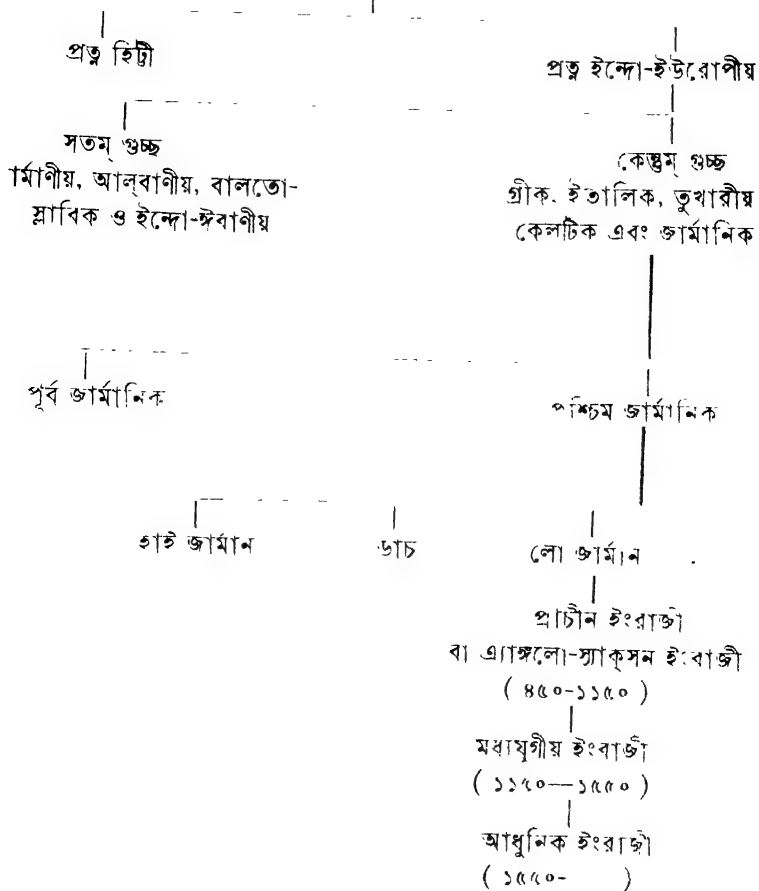 প্রত্ন হিট্টী
প্রত্ন ইন্দো-ইউরোপীয়
সতম্ গুচ্ছ
র্মাণীয়, আল্‌বাণীয়, বালতো-
স্লাবিক ও ইন্দো-ঈবাণীয়
কেন্তুম্ গুচ্ছ
গ্রীক. ইতালিক, তুখারীয়
কেলটিক এবং জার্মানিক
পূর্ব জার্মানিক
পশ্চিম জার্মানিক
হাই জার্মান
ডাচ
লো জার্মান
প্রাচীন ইংরাজী
বা এ্যাঙ্গলো-স্যাক্‌সন ইংবাজী
( ৪৫০-১১৫০ )
মধ্যযুগীয় ইংবাজী
( ১১৫০—১৫৫০ )
আধুনিক ইংরাজী
( ১৫৫০- )